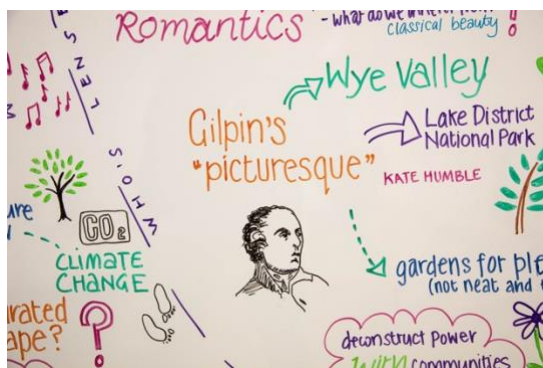 Romantics
- what do we
classical beauty?
Wye Valley
Gilpin's
"picturesque"
Lake District
National Park
KATE HUMBLE
LENSE
WHOIS
ure
CO2
CLIMATE
CHANGE
urated
ape?
gardens for ple
(not neat and
deconstruct power
with communities